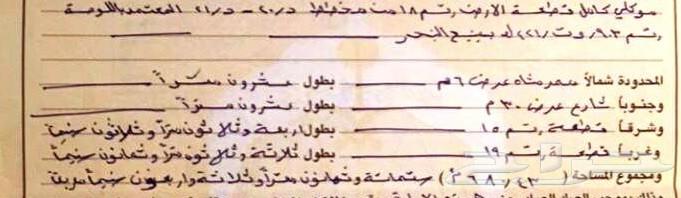 موكلي كامل قطعة الارض رقم ١٨ من مخطط د/٢٠ – د/٢١ المعتمد باللوحة
رقم ٩٠٣/وت/٢٢١/ له بينبع البحر
المحدودة شمالاً ممر مشاه عرض ٦م بطول عشرون متراً
وجنوباً شارع عرض ٣٠م بطول عشرون متراً
وشرقاً قطعة رقم ١٥ بطول اربعة وثلاثون متراً وثلاثون سم
وغرباً قطعة رقم ١٩ بطول ثلاثة وثلاثون متراً وثمانون سم
ومجموع المساحة (٦٨٠/٤٣م٢) ستمائة وثمانون متراً وثلاثة واربعون سم مربعاً